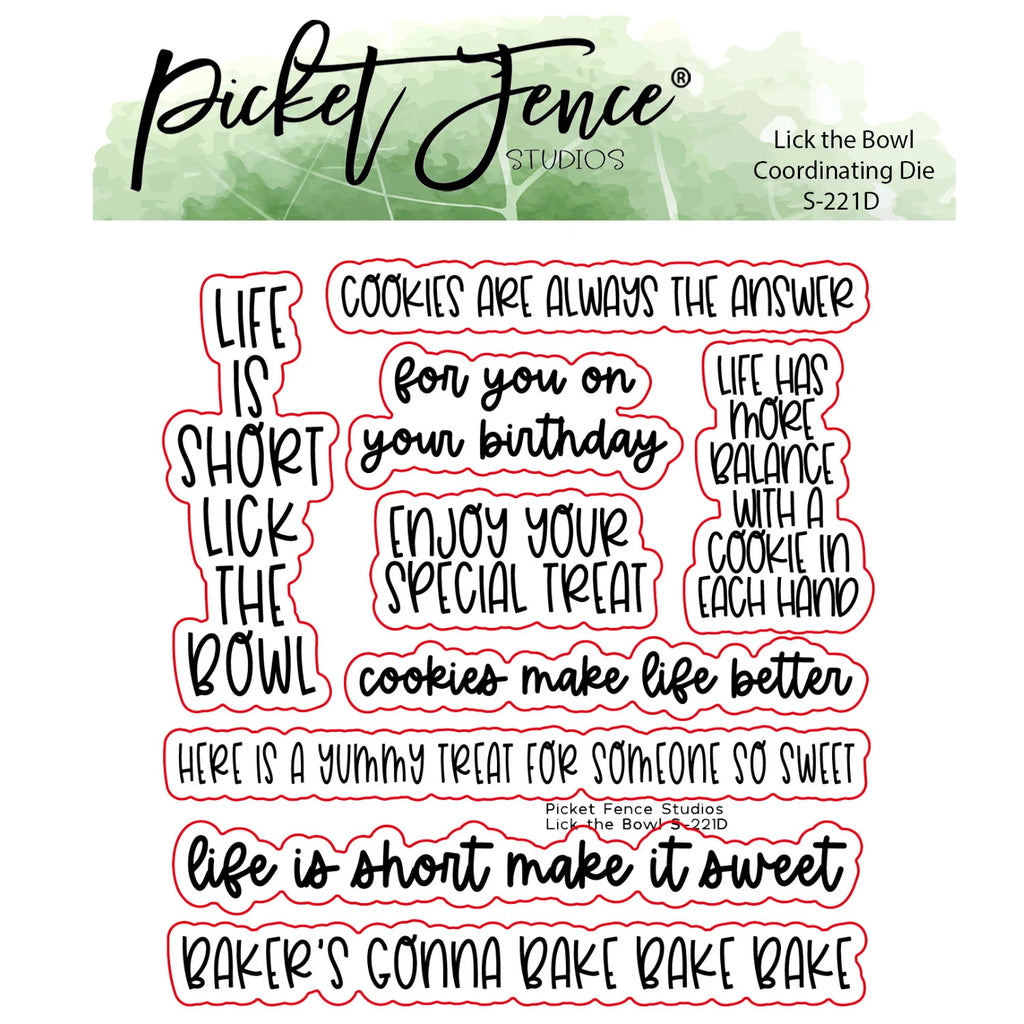 Picket Fence®
STUDIOS
Lick the Bowl
Coordinating Die
S-221D
LIFE
IS
SHORT
LICK
THE
BOWL
COOKIES ARE ALWAYS THE ANSWER
for you on
your birthday
LIFE HAS
MORE
BALANCE
WITH A
COOKIE IN
EACH HAND
ENJOY YOUR
SPECIAL TREAT
cookies make life better
HERE IS A YUMMY TREAT FOR SOMEONE SO SWEET
Picket Fence Studios
Lick the Bowl S-221D
life is short make it sweet
BAKER'S GONNA BAKE BAKE BAKE